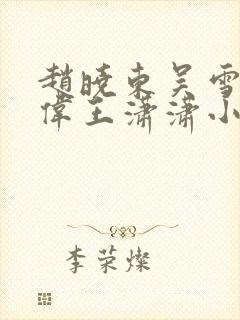 趙曉東吳雪
偉王瀟瀟小
李荣燦